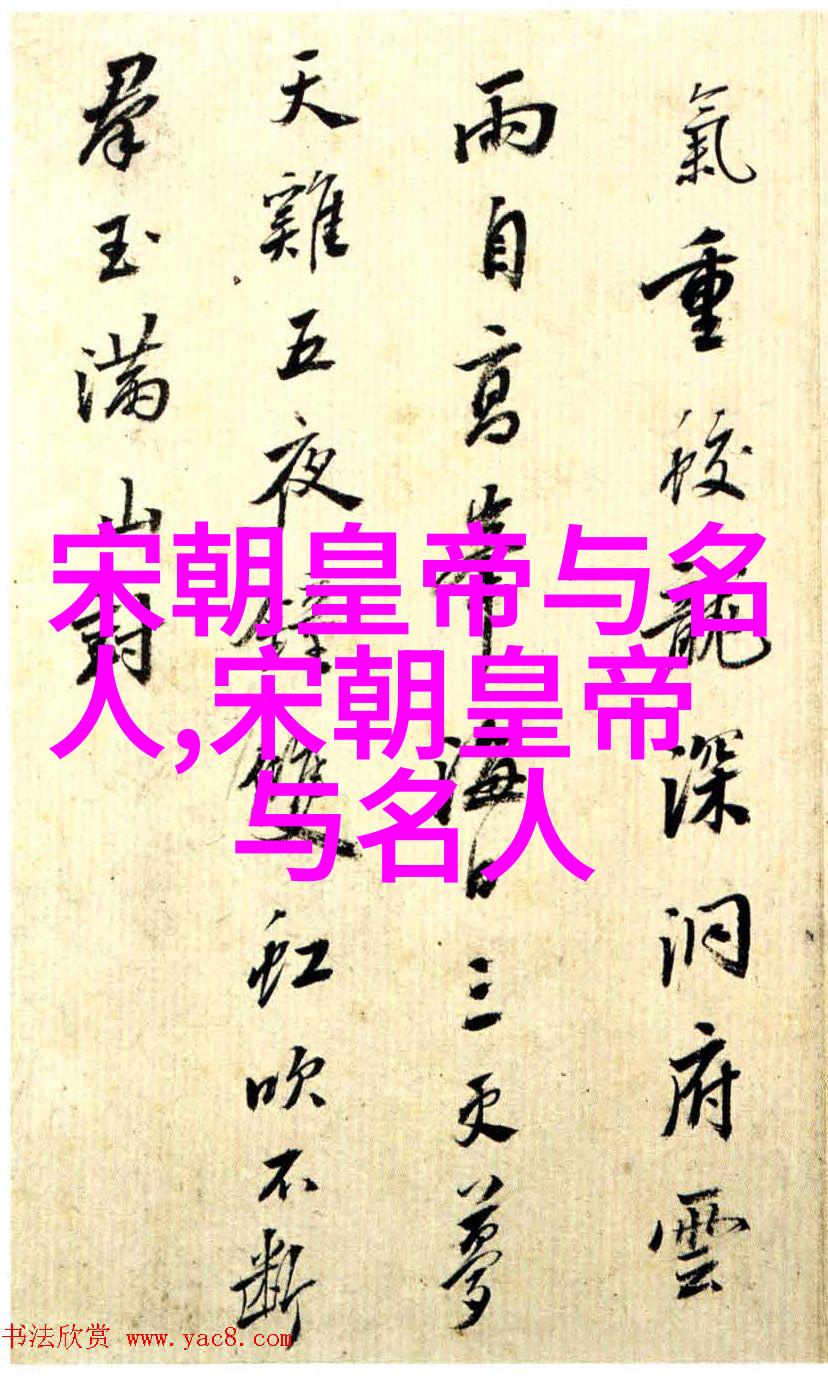 氣重蛟龍深洞府雲
雨自高峯海日三更夢
天雞五夜鐘雙虹吹不斷
羣玉滿山封
宋朝皇帝与名
人,宋朝皇帝
与名人
书法欣赏 www.yac8.com